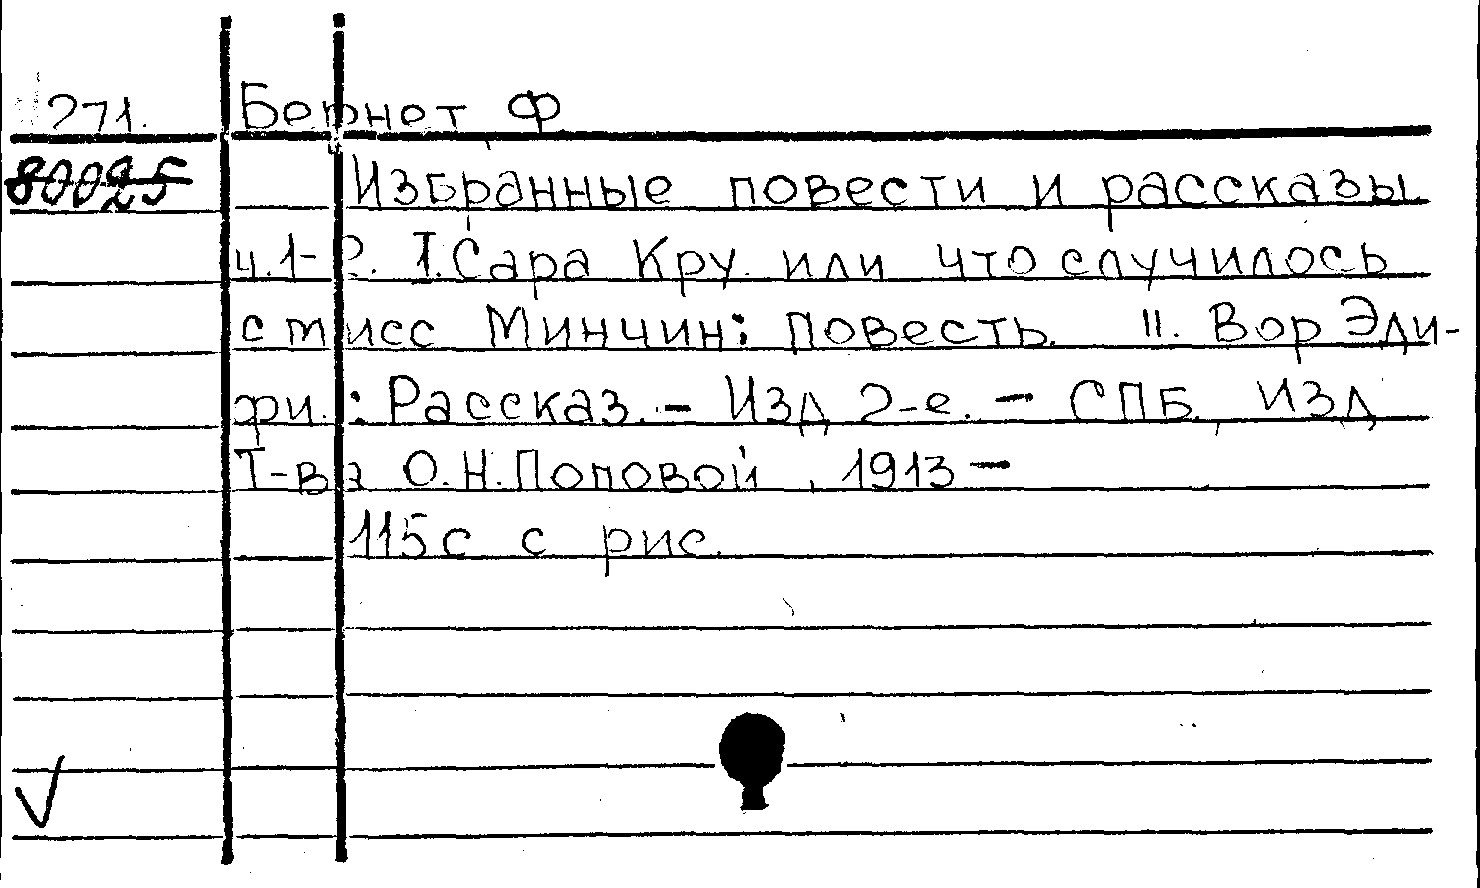 271. Бернет Ф
80025 Избранные повести и рассказы
ч.1-2. I. Сара Кру. или что случилось
с мисс Минчин: повесть. II. Вор Эди-
фи.: Рассказ. - Изд 2-е. - СПБ. ИЗД
Т-ва О.Н.Поповой, 1913 -
115с с рис.